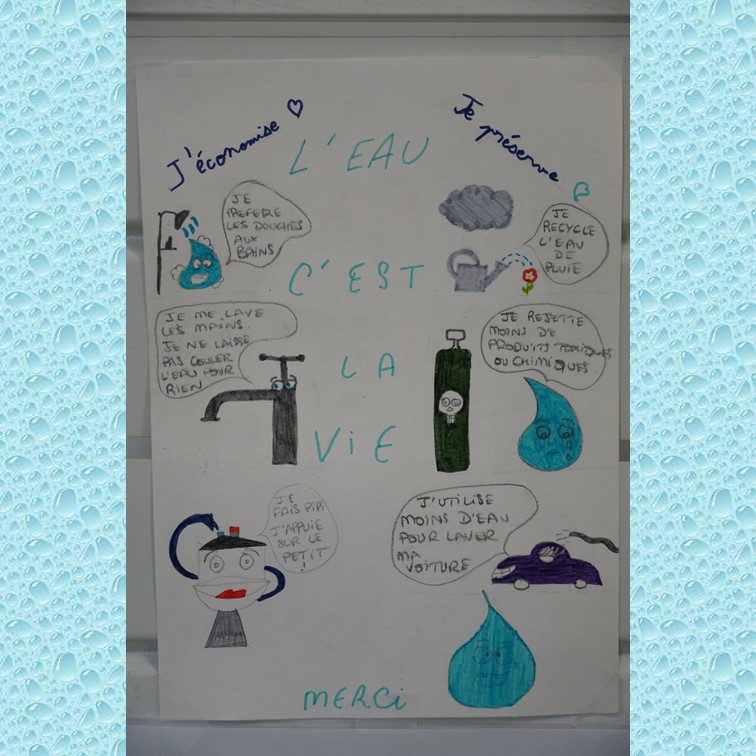 J'économise
Je préserve
L'EAU
C'EST
LA
ViE
JE
PREFERE
LES DOUCHES
AUX
BAINS
JE
RECYCLE
L'EAU
DE
PLUIE
JE ME LAVE
LES MAINS.
JE NE LAISSE
PAS COULER
L'EAU POUR
RIEN
JE REJETTE
MOINS DE
PRODUITS TOXIQUES
OU CHIMIQUES
JE
FAIS PIPI
J'APPUIE
SUR LE
PETIT
!
J'UTILISE
MOINS D'EAU
POUR LAVER
MA
VOITURE
MERCi